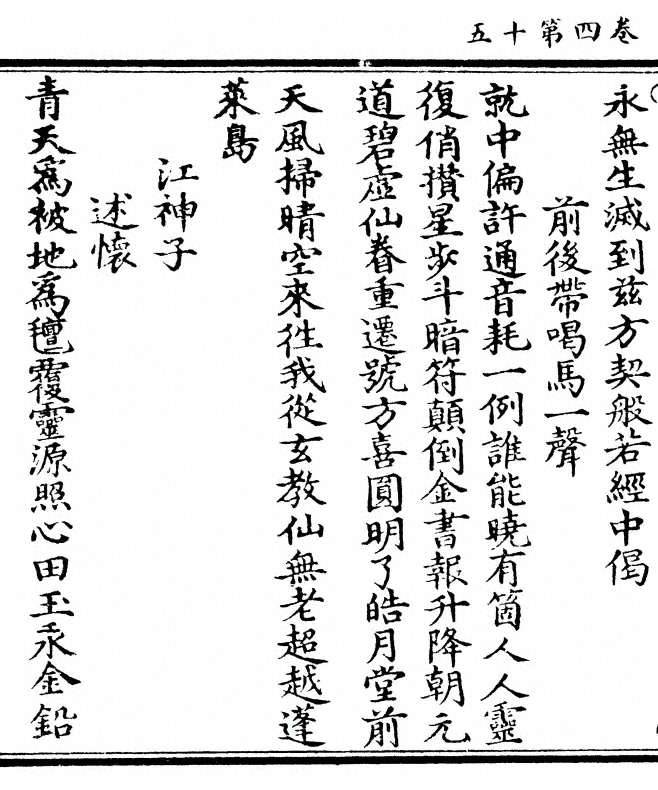 卷四第十五
永無生滅到茲方契般若經中偈
前後帶喝馬一聲
就中偏許通音耗一例誰能曉有箇人人靈
復俏攢星步斗暗符顛倒金書報升降朝元
道碧虛仙眷重遷號方喜圓明了皓月堂前
天風掃晴空來往我從玄教仙無老超越蓬
萊島
江神子
述懷
青天為被地為氊覆靈源照心田玉汞金鉛